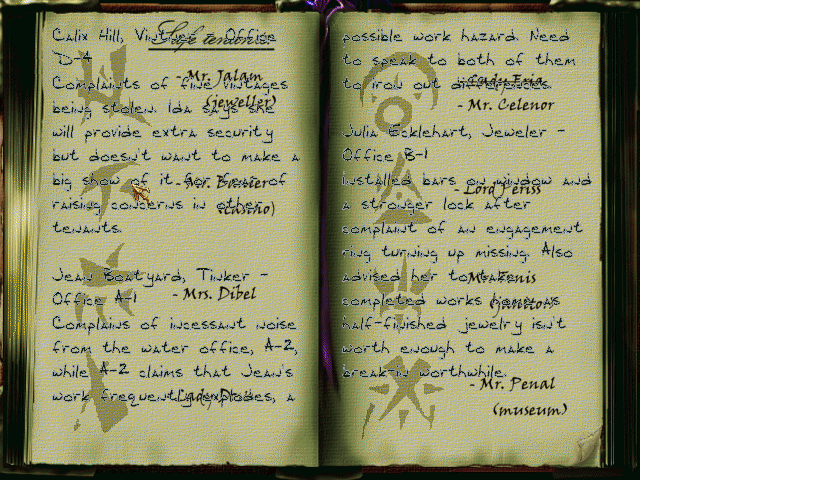 Safe tenants:
Calix Hill, Vintner - Office
D-4
- Mr. Jalam
Complaints of fine vintages
(jeweller)
being stolen. Ida says she
will provide extra security
but doesn't want to make a
big show of it for fear of
- Mr.
raising concerns in other
(casino)
tenants.
Jean Boatyard, Tinker -
Office A-1
- Mrs. Dibel
Complains of incessant noise
from the water office, A-2,
while A-2 claims that Jean's
work frequently explodes, a
possible work hazard. Need
to speak to both of them
to iron out differences.
Lady Eria
- Mr. Celenor
Julia Ecklehart, Jeweler -
Office B-1
Installed bars on window and
- Lord Feriss
a stronger lock after
complaint of an engagement
ring turning up missing. Also
advised her to
completed works home as
(janitor)
half-finished jewelry isn't
worth enough to make a
break-in worthwhile.
- Mr. Penal
(museum)